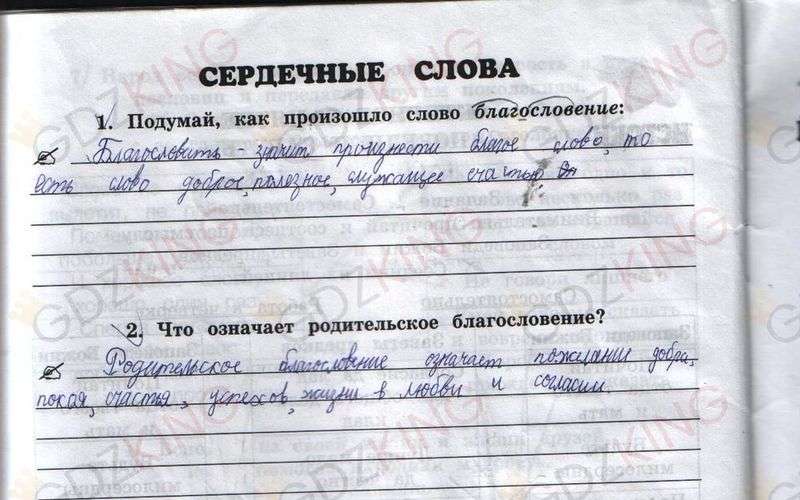 СЕРДЕЧНЫЕ СЛОВА
1. Подумай, как произошло слово благословение:
Благословить - значит произнести благое слово, то
есть слово доброе, полезное, служащее счастью
2. Что означает родительское благословение?
Родительское благословение означает пожелание добра,
покоя, счастья, успехов, жизни в любви и согласии.
GDZKING